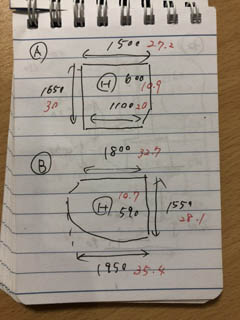 A
1500 27.2
1650 H 600
30 10.9
1100 20
B
1800 32.7
10.7
H 590 1550
28.1
1950 35.4